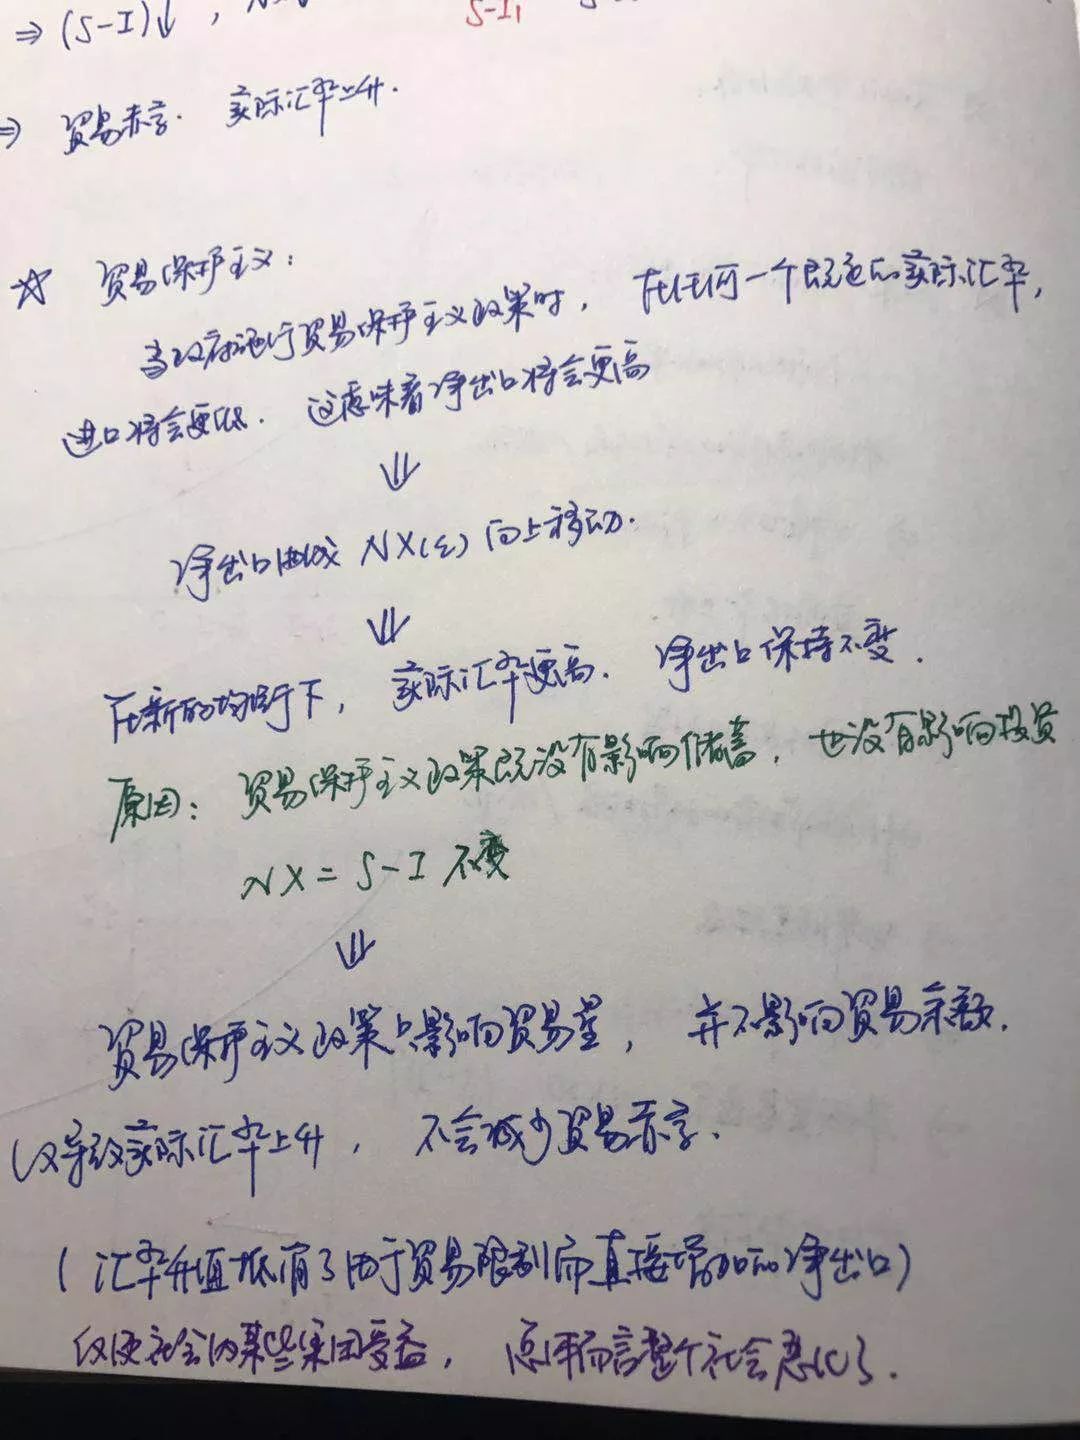 ⇒ (S-I)↓，
S-I₁
⇒ 贸易赤字． 实际汇率上升．
☆ 贸易保护主义：
当政府施行贸易保护主义政策时， 在任何一个既定的实际汇率，
进口将会更低． 这意味着净出口将会更高
⇓
净出口曲线 NX(ε) 向上移动．
⇓
在新的均衡下， 实际汇率更高． 净出口保持不变．
原因： 贸易保护主义政策既没有影响储蓄， 也没有影响投资
NX = S-I 不变
⇓
贸易保护主义政策只影响贸易量， 并不影响贸易余额．
仅导致实际汇率上升， 不会减少贸易赤字．
(汇率升值抵消了由于贸易限制而直接增加的净出口)
仅使社会内某些集团受益， 总体而言整个社会恶化了．